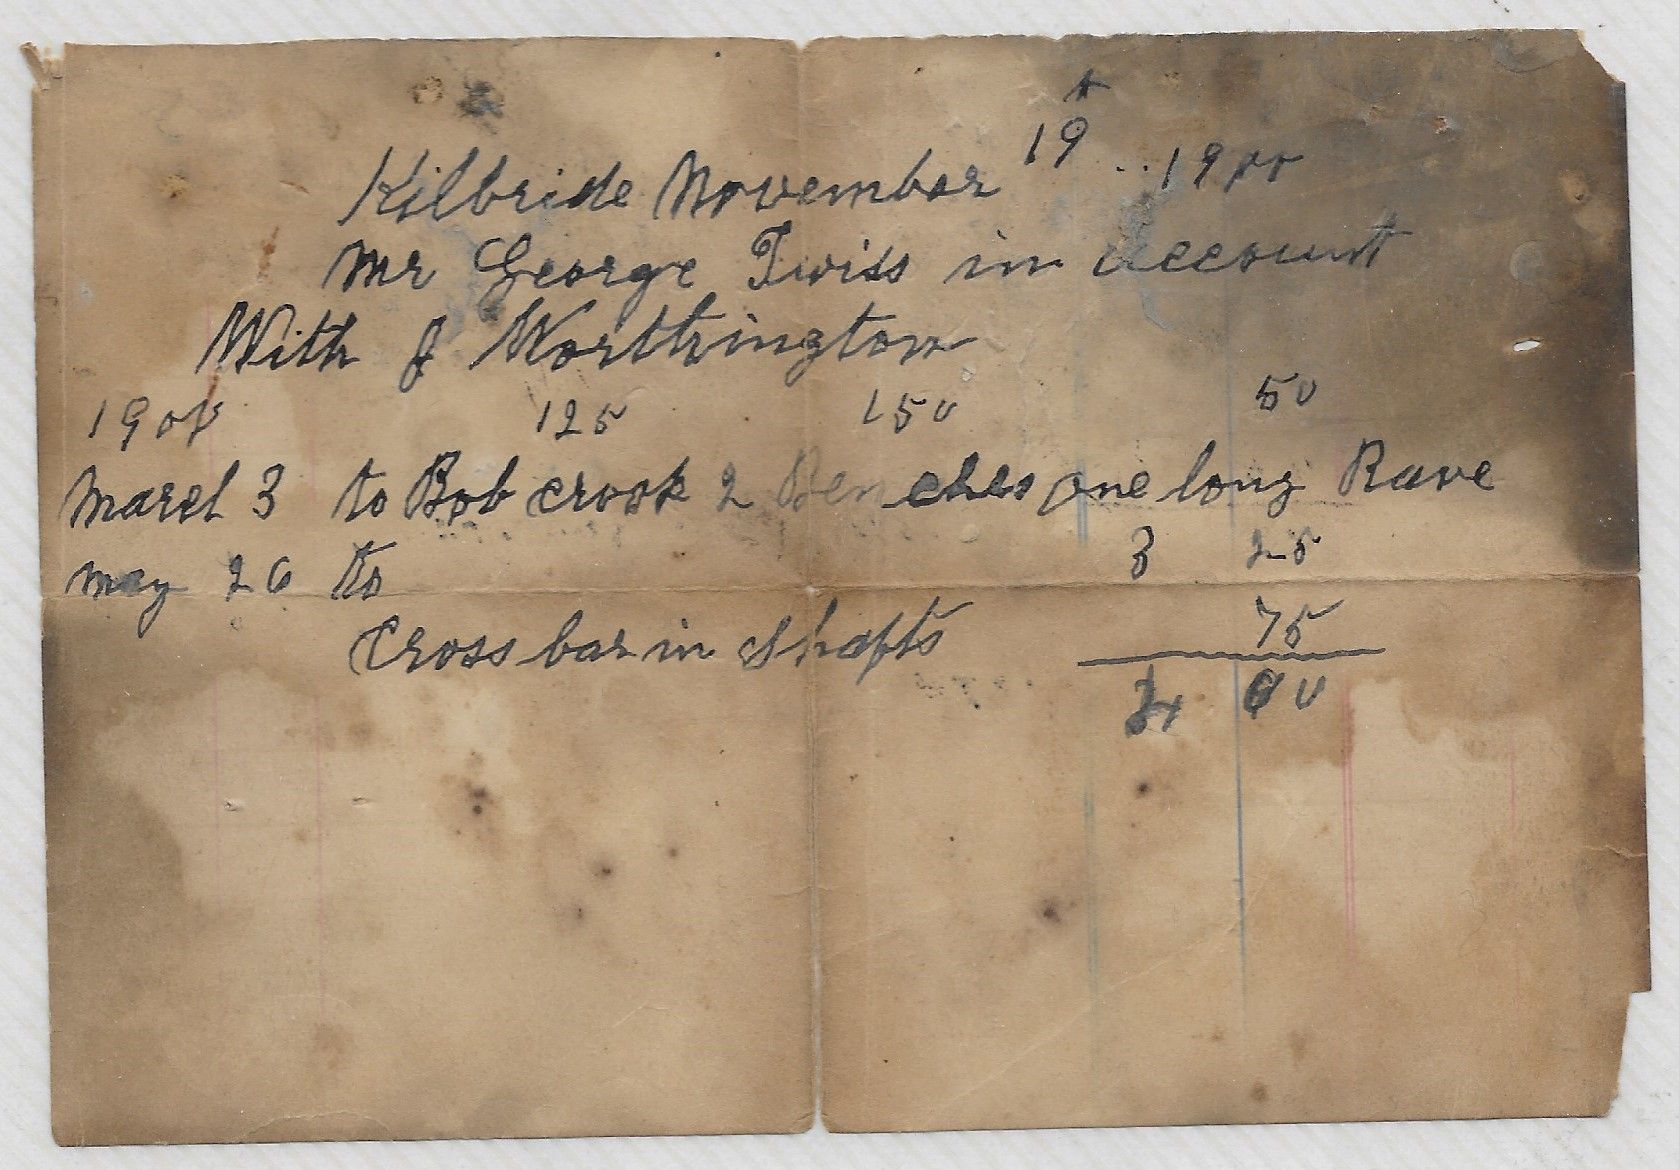 Kilbride November 19th .. 1900
Mr George Twiss in account
With J Worthington
1900 125 150 50
March 3 to Bob crook 2 Benches one long Rave
3 25
may 26 to
Cross bar in Shafts 75
4 00